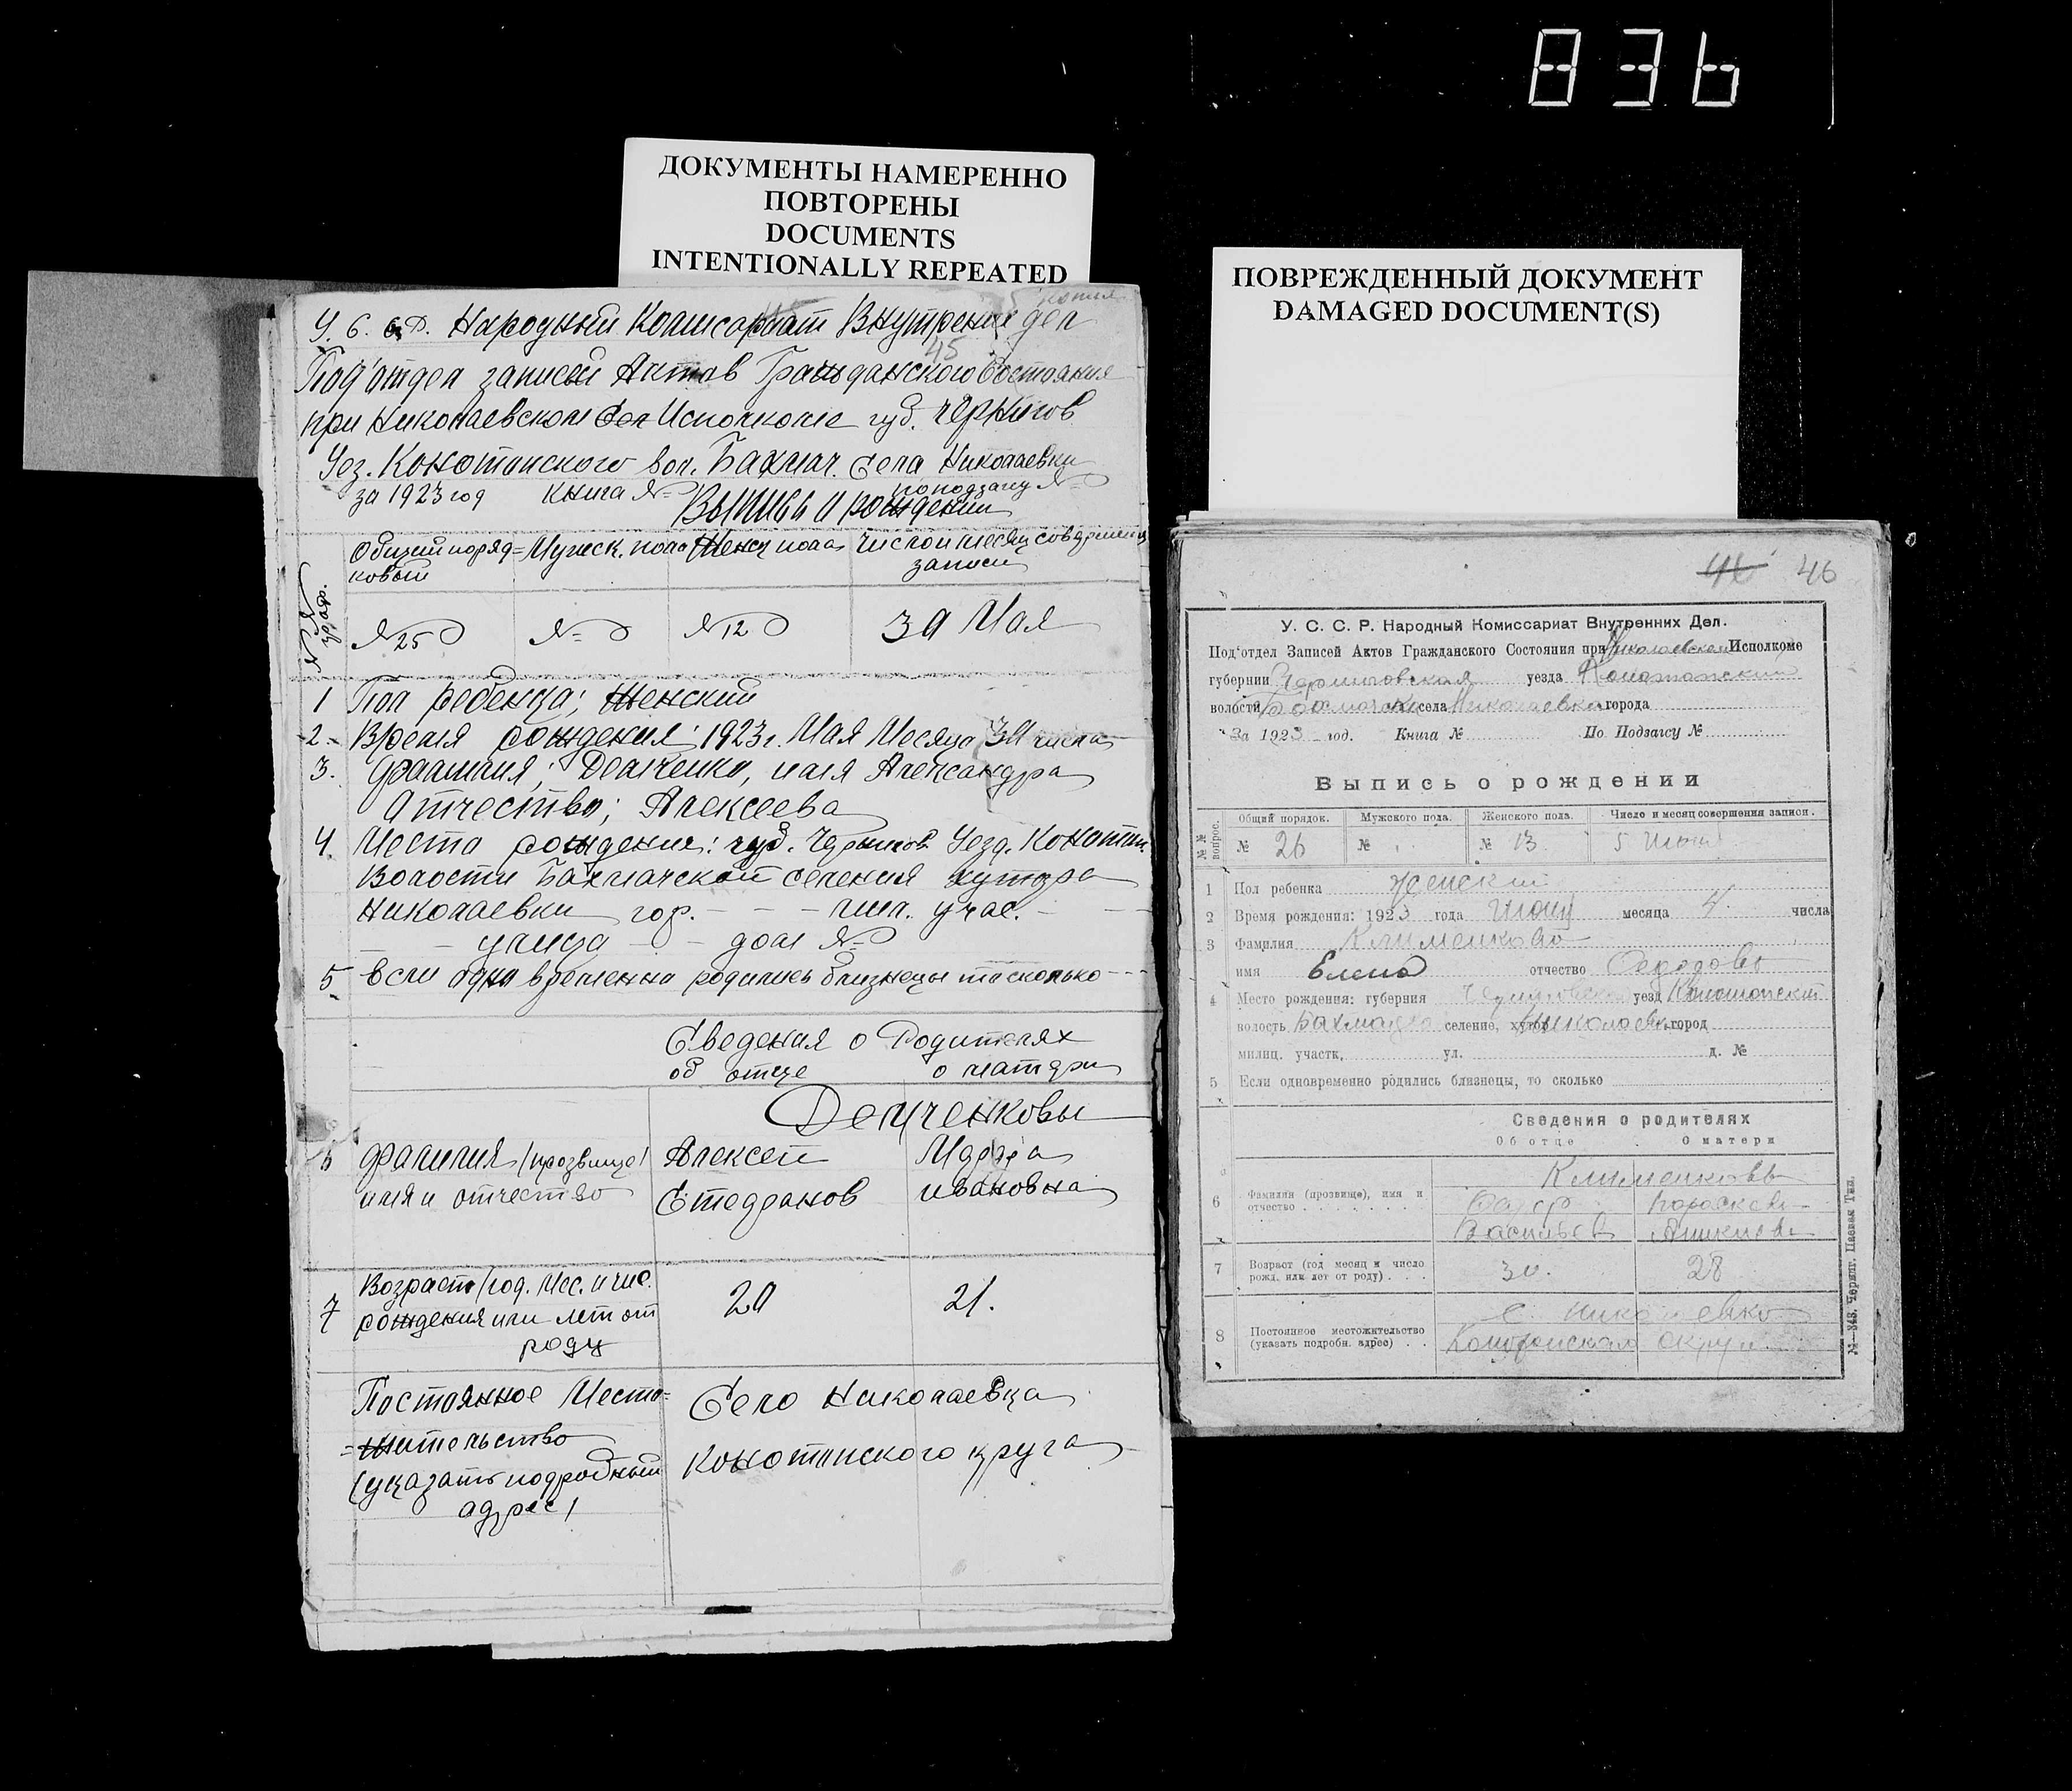 836
ДОКУМЕНТЫ НАМЕРЕННО
ПОВТОРЕНЫ
DOCUMENTS
INTENTIONALLY REPEATED
ПОВРЕЖДЕННЫЙ ДОКУМЕНТ
DAMAGED DOCUMENT(S)
копия
45
Народный Комисариат Внутрених дел
Под'отдел записей Актов Гражданского Состояния
при Николаевском Сел Исполкоме губ. Чернигов
Уез. Конотопского вол. Бахмач. Села Николаевки
за 1923 год Книга № по подзагсу №
Выпись о рождении
Общий поряд= Мужск. пола Женск пола Число и месяц совершения
ковый записи
№ 25 № № 12 30 Мая
1 Пол ребенка; Женский
2. Время рождения: 1923 г. Мая Месяца 30 числа
3. Фамилия; Демченко, имя Александра
Отчество; Алексеева
4. Место рождения: губ. Чернигов Уезд. Конотоп.
Волости Бахмачской селения хутора
Николаевки гор. - - - мил. учас. - -
- - улица - - дом №
5 Если одно временно родились близнецы то сколько - - -
Сведения о Родителях
об отце о матери
Демченковы
6 Фамилия (прозвище) Алексей Марфа
имя и отчество Стефанов Ивановна
Возраст (год. Мес. и чис.
7 рождения или лет от 20 21.
роду
Постоянное Место= Село Николаевка
=жительство
(указать подробный Конотопского круга
адрес)
46
У. С. С. Р. Народный Комиссариат Внутренних Дел.
Под'отдел Записей Актов Гражданского Состояния при Николаевском Исполкоме
губернии Черниговская уезда Конотопский
волости Бахмачска села Николаевка города
За 1923 год. Книга № По Подзагсу №
Выпись о рождении
№№ вопрос. Общий порядок. Мужского пола. Женского пола. Число и месяц совершения записи.
№ 26 № № 13 5 Июня
1 Пол ребенка женский
2 Время рождения: 1923 года Июня месяца 4 числа
3 Фамилия Клименкова
имя Елена отчество
4 Место рождения: губерния Черниговска уезд Конотопский
волость Бахмачска селение, хутор Николаевка город
милиц. участк, ул. д. №
5 Если одновременно родились близнецы, то сколько
Сведения о родителях
Об отце О матери
Клименковы
6 Фамилия (прозвище), имя и
отчество
Васильев
7 Возраст (год месяц и число
рожд. или лет от роду) 30. 28
8 Постоянное местожительство
(указать подробн. адрес)
с. Николаевка
№—343. Черниг. Цевая Тип.